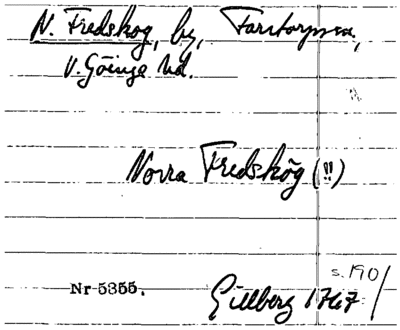 N. Fredskog, by, Farstorpssn,
V. Göinge hd.
Norra Fredskög (!!)
s. 190
Nr 5355.
Gillberg 1767